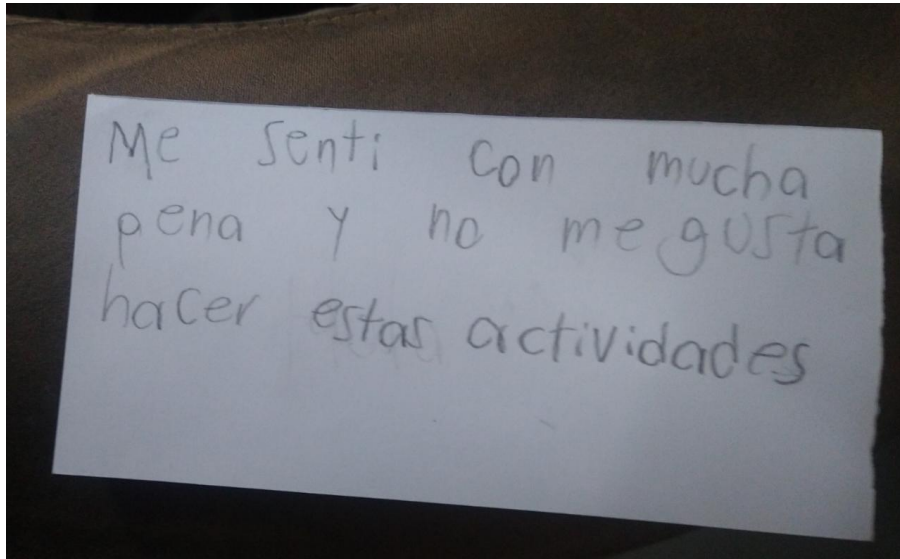 Me senti con mucha
pena y no me gusta
hacer estas actividades